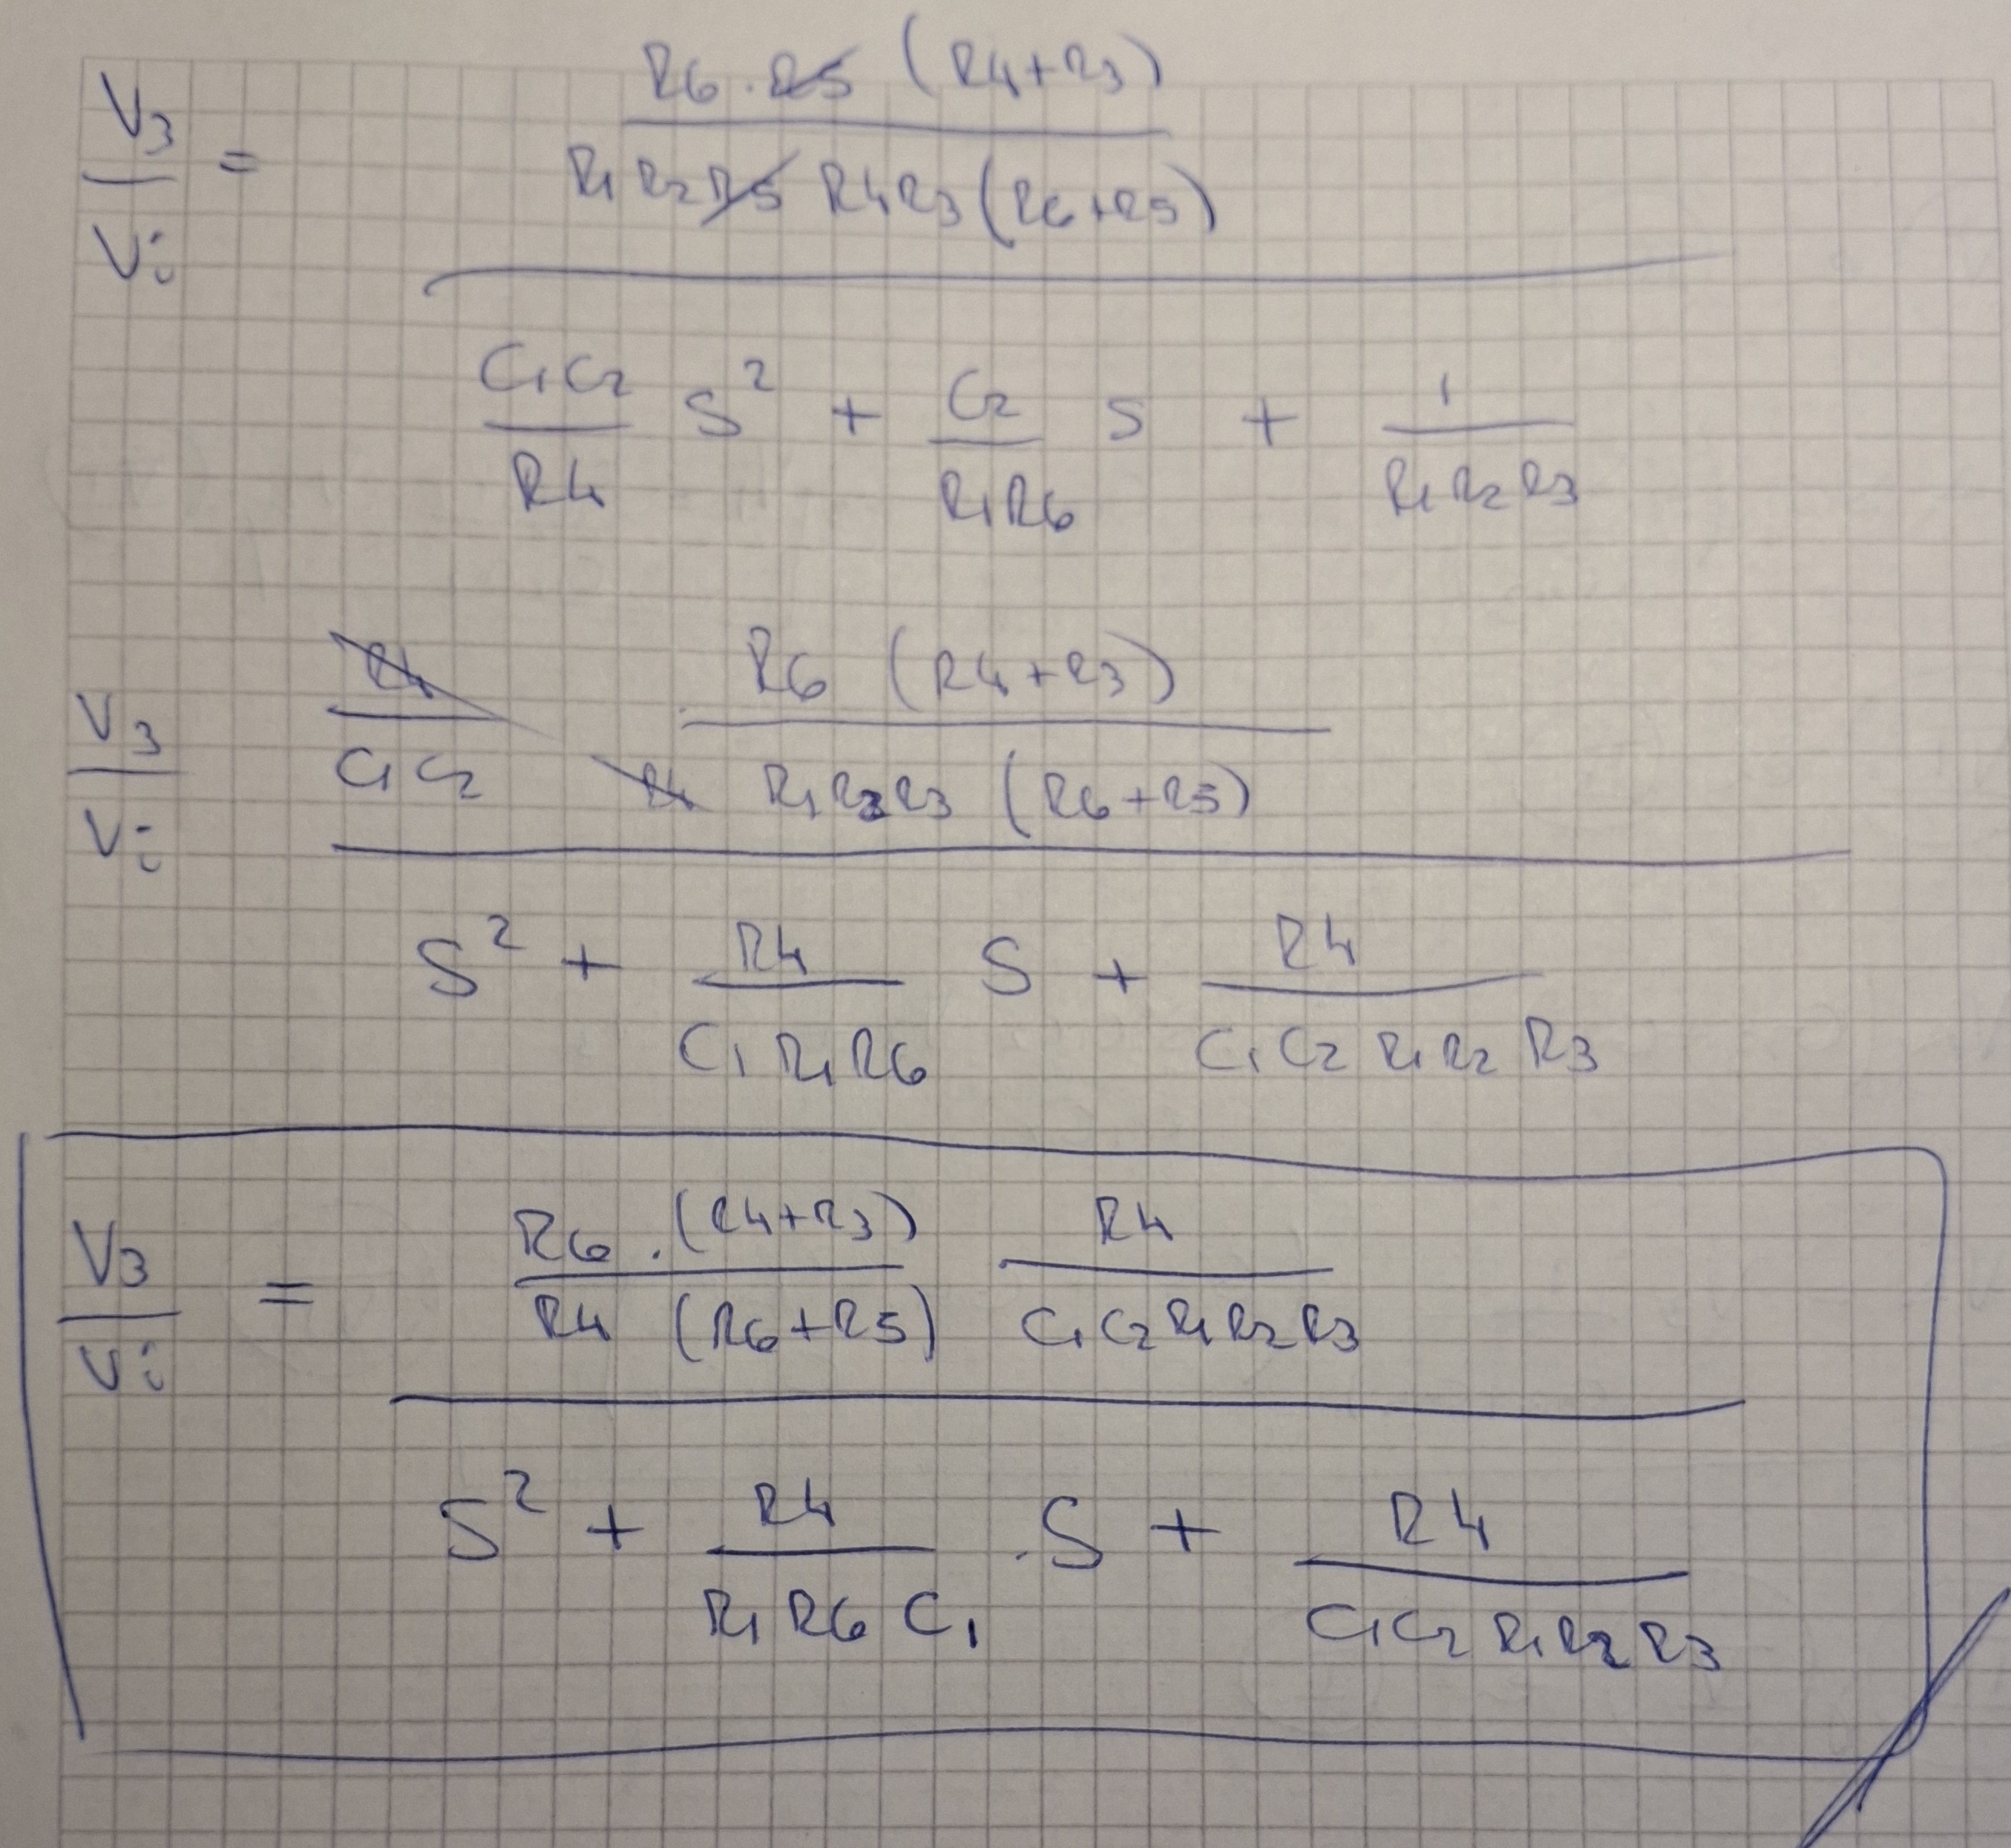 V3/Vi = (R6 · R5 (R4+R3)) / (R1 R2 R5 R4 R3 (R6+R5))
C1C2/R4 S² + C2/(R1R6) S + 1/(R1R2R3)
V3/Vi R4/(C1C2) R6 (R4+R3) / (R4 R1R2R3 (R6+R5))
S² + R4/(C1R1R6) S + R4/(C1C2R1R2R3)
V3/Vi = R6 · (R4+R3) / (R4 (R6+R5)) R4/(C1C2R1R2R3)
S² + R4/(R1R6C1) · S + R4/(C1C2R1R2R3)